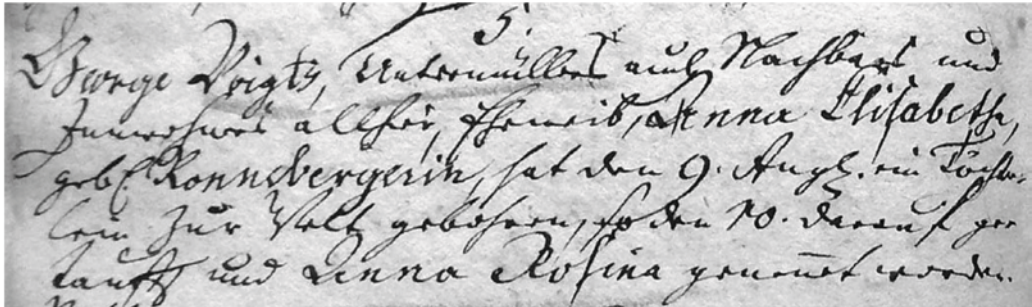 5.
George Voigts, Untermüllers auch Nachbars und
Innwohners allhier, Eheweib, Anna Elisabetha,
geb. Ronnebergerin, hat den 9. Aug. ein Töchter-
lein zur Welt gebohren, so den 10. darauf ge-
taufft und Anna Rosina genennet worden.